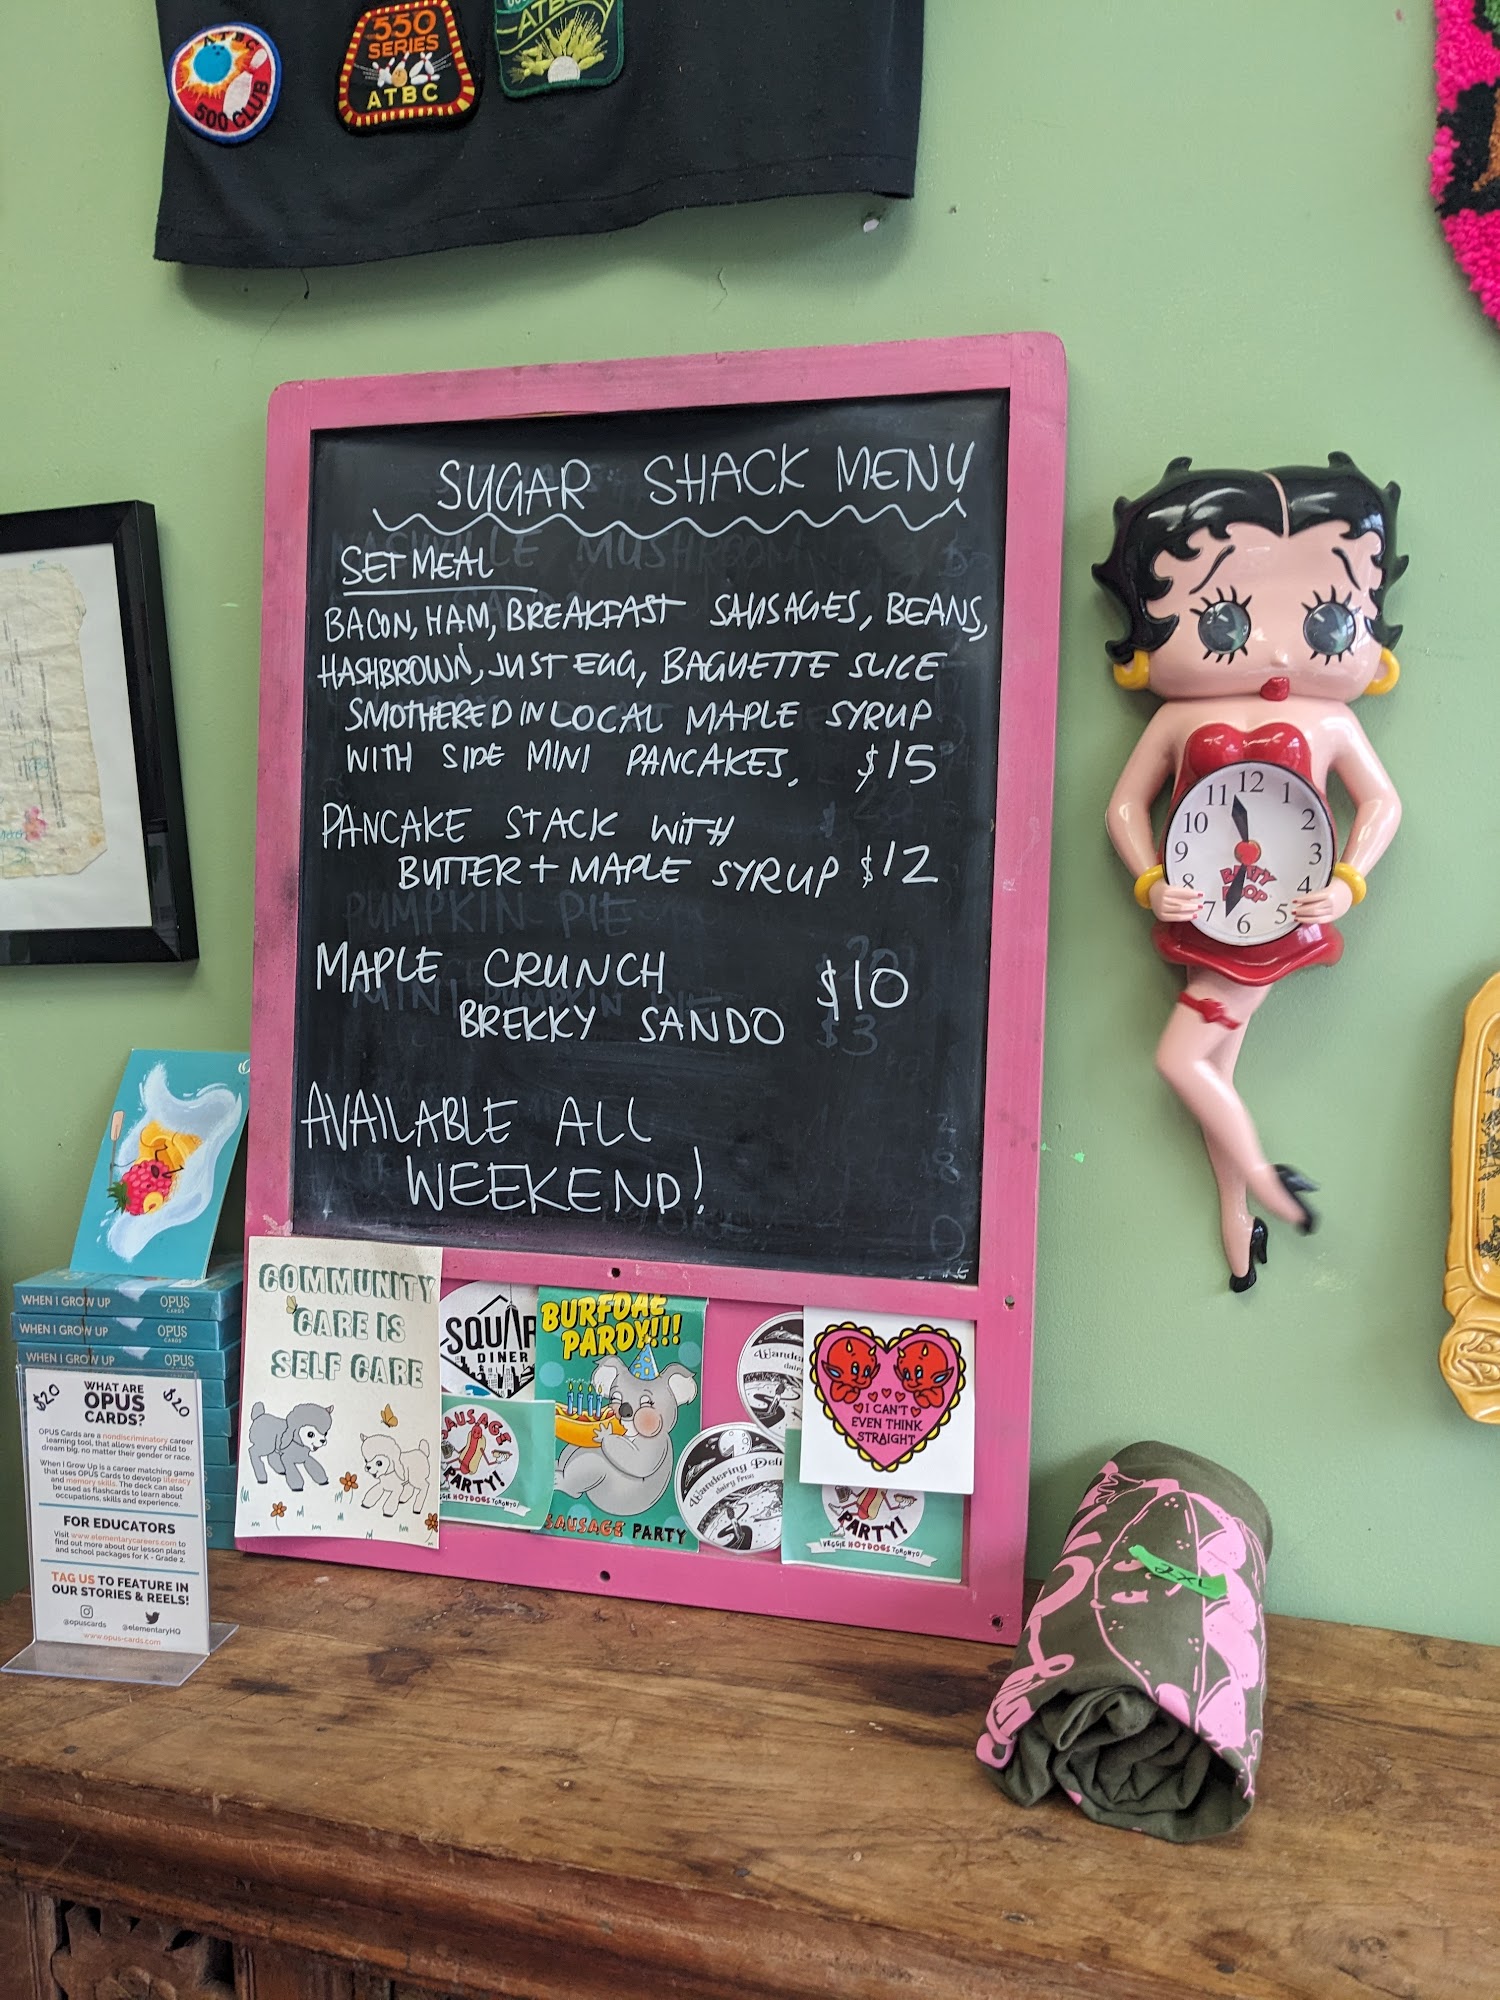 ATBC
500 CLUB
550
SERIES
ATBC
ATBC
SUGAR SHACK MENU
SET MEAL
BACON, HAM, BREAKFAST SAUSAGES, BEANS,
HASHBROWN, JUST EGG, BAGUETTE SLICE
SMOTHERED IN LOCAL MAPLE SYRUP
WITH SIDE MINI PANCAKES, $15
PANCAKE STACK WITH
BUTTER + MAPLE SYRUP $12
PUMPKIN PIE
MAPLE CRUNCH $10
MINI PUMPKIN PIE
BREKKY SANDO $3
AVAILABLE ALL
WEEKEND!
11 12 1
10 2
9 3
8 4
7 6 5
BETTY
BOOP
WHEN I GROW UP OPUS
CARDS
WHEN I GROW UP OPUS
CARDS
WHEN I GROW UP OPUS
$20 WHAT ARE $20
OPUS
CARDS?
OPUS Cards are a nondiscriminatory career
learning tool, that allows every child to
dream big, no matter their gender or race.
When I Grow Up is a career matching game
that uses OPUS Cards to develop literacy
and memory skills. The deck can also
be used as flashcards to learn about
occupations, skills and experience.
FOR EDUCATORS
Visit www.elementarycareers.com to
find out more about our lesson plans
and school packages for K - Grade 2.
TAG US TO FEATURE IN
OUR STORIES & REELS!
@opuscards @elementaryHQ
www.opus-cards.com
COMMUNITY
CARE IS
SELF CARE
SQUAR
DINER
SAUSAGE
PARTY!
VEGGIE HOTDOGS TORONTO!
BURFDAE
PARDY!!!
SAUSAGE PARTY
Wandering Deli
dairy free
I CAN'T
EVEN THINK
STRAIGHT
PARTY!
VEGGIE HOTDOGS TORONTO!
2XL